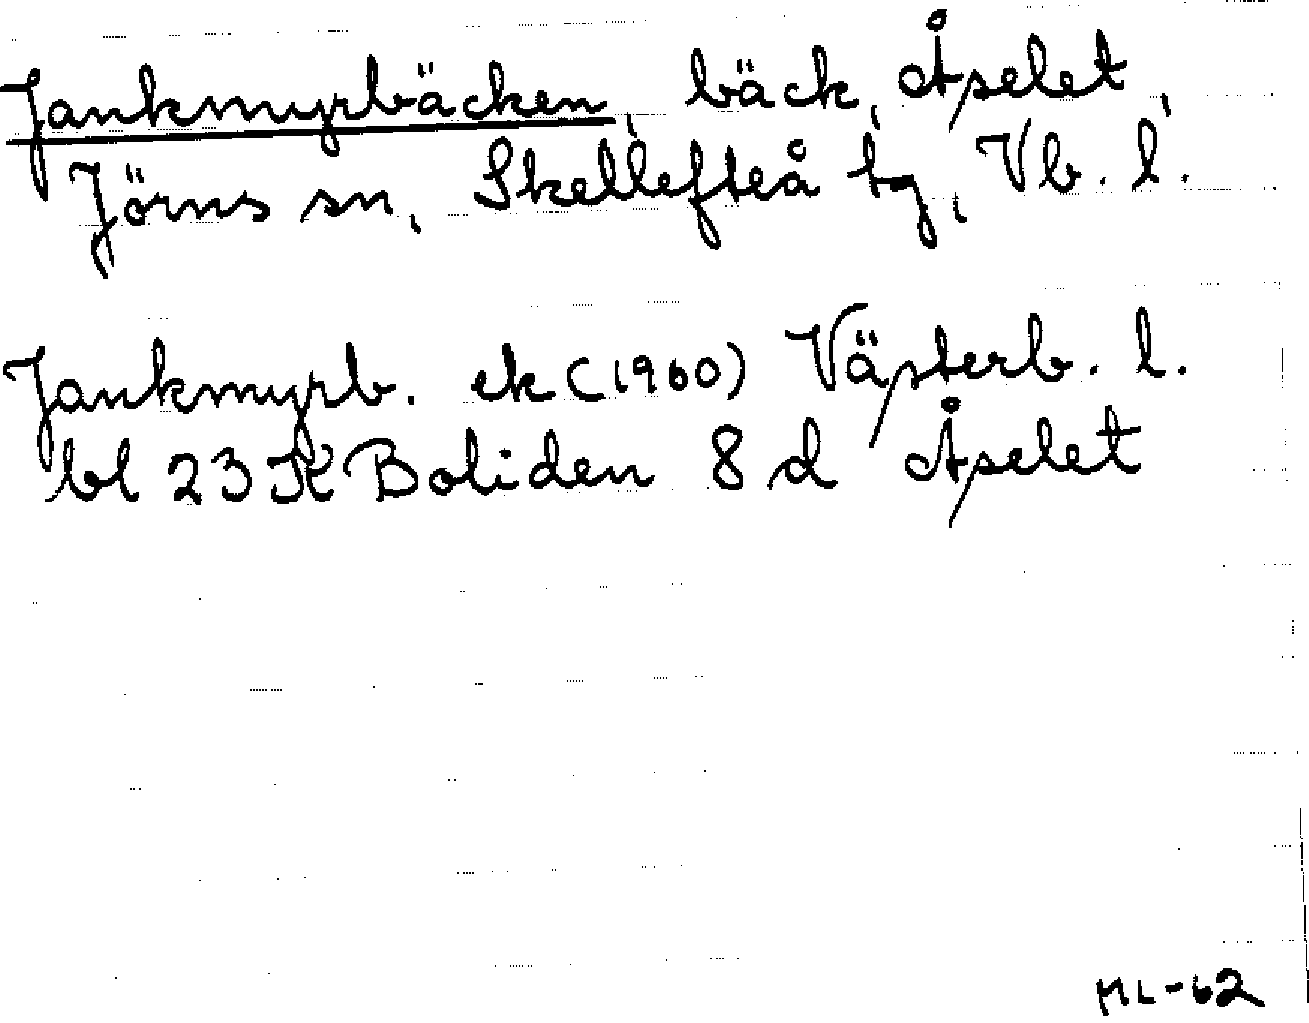 Jankmyrbäcken, bäck, Åselet,
Jörns sn, Skellefteå tg, Vb. l.
Jankmyrb. ek (1960) Västerb. l.
bl 23 K Boliden 8 d Åselet
ML-62